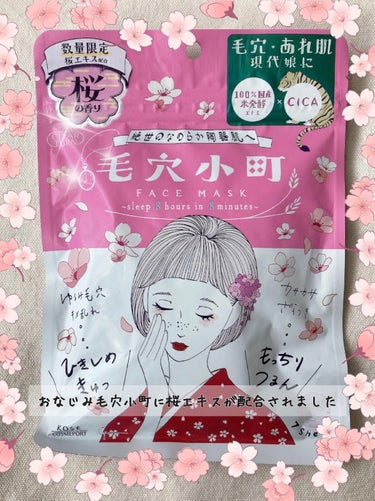 数量限定
桜エキス配合
桜
の香り
毛穴・あれ肌
現代娘に
100%国産
米発酵
エキス
×
CICA
絶世のなめらか陶器肌へ
毛穴小町
FACE MASK
~sleep 8 hours in 8 minutes~
ゆるみ毛穴
肌あれ
ひきしめ
きゅっ
カサカサ
ざらつき
もっちり
つるん
おなじみ毛穴小町に桜エキスが配合されました
KOSÉ
COSMEPORT